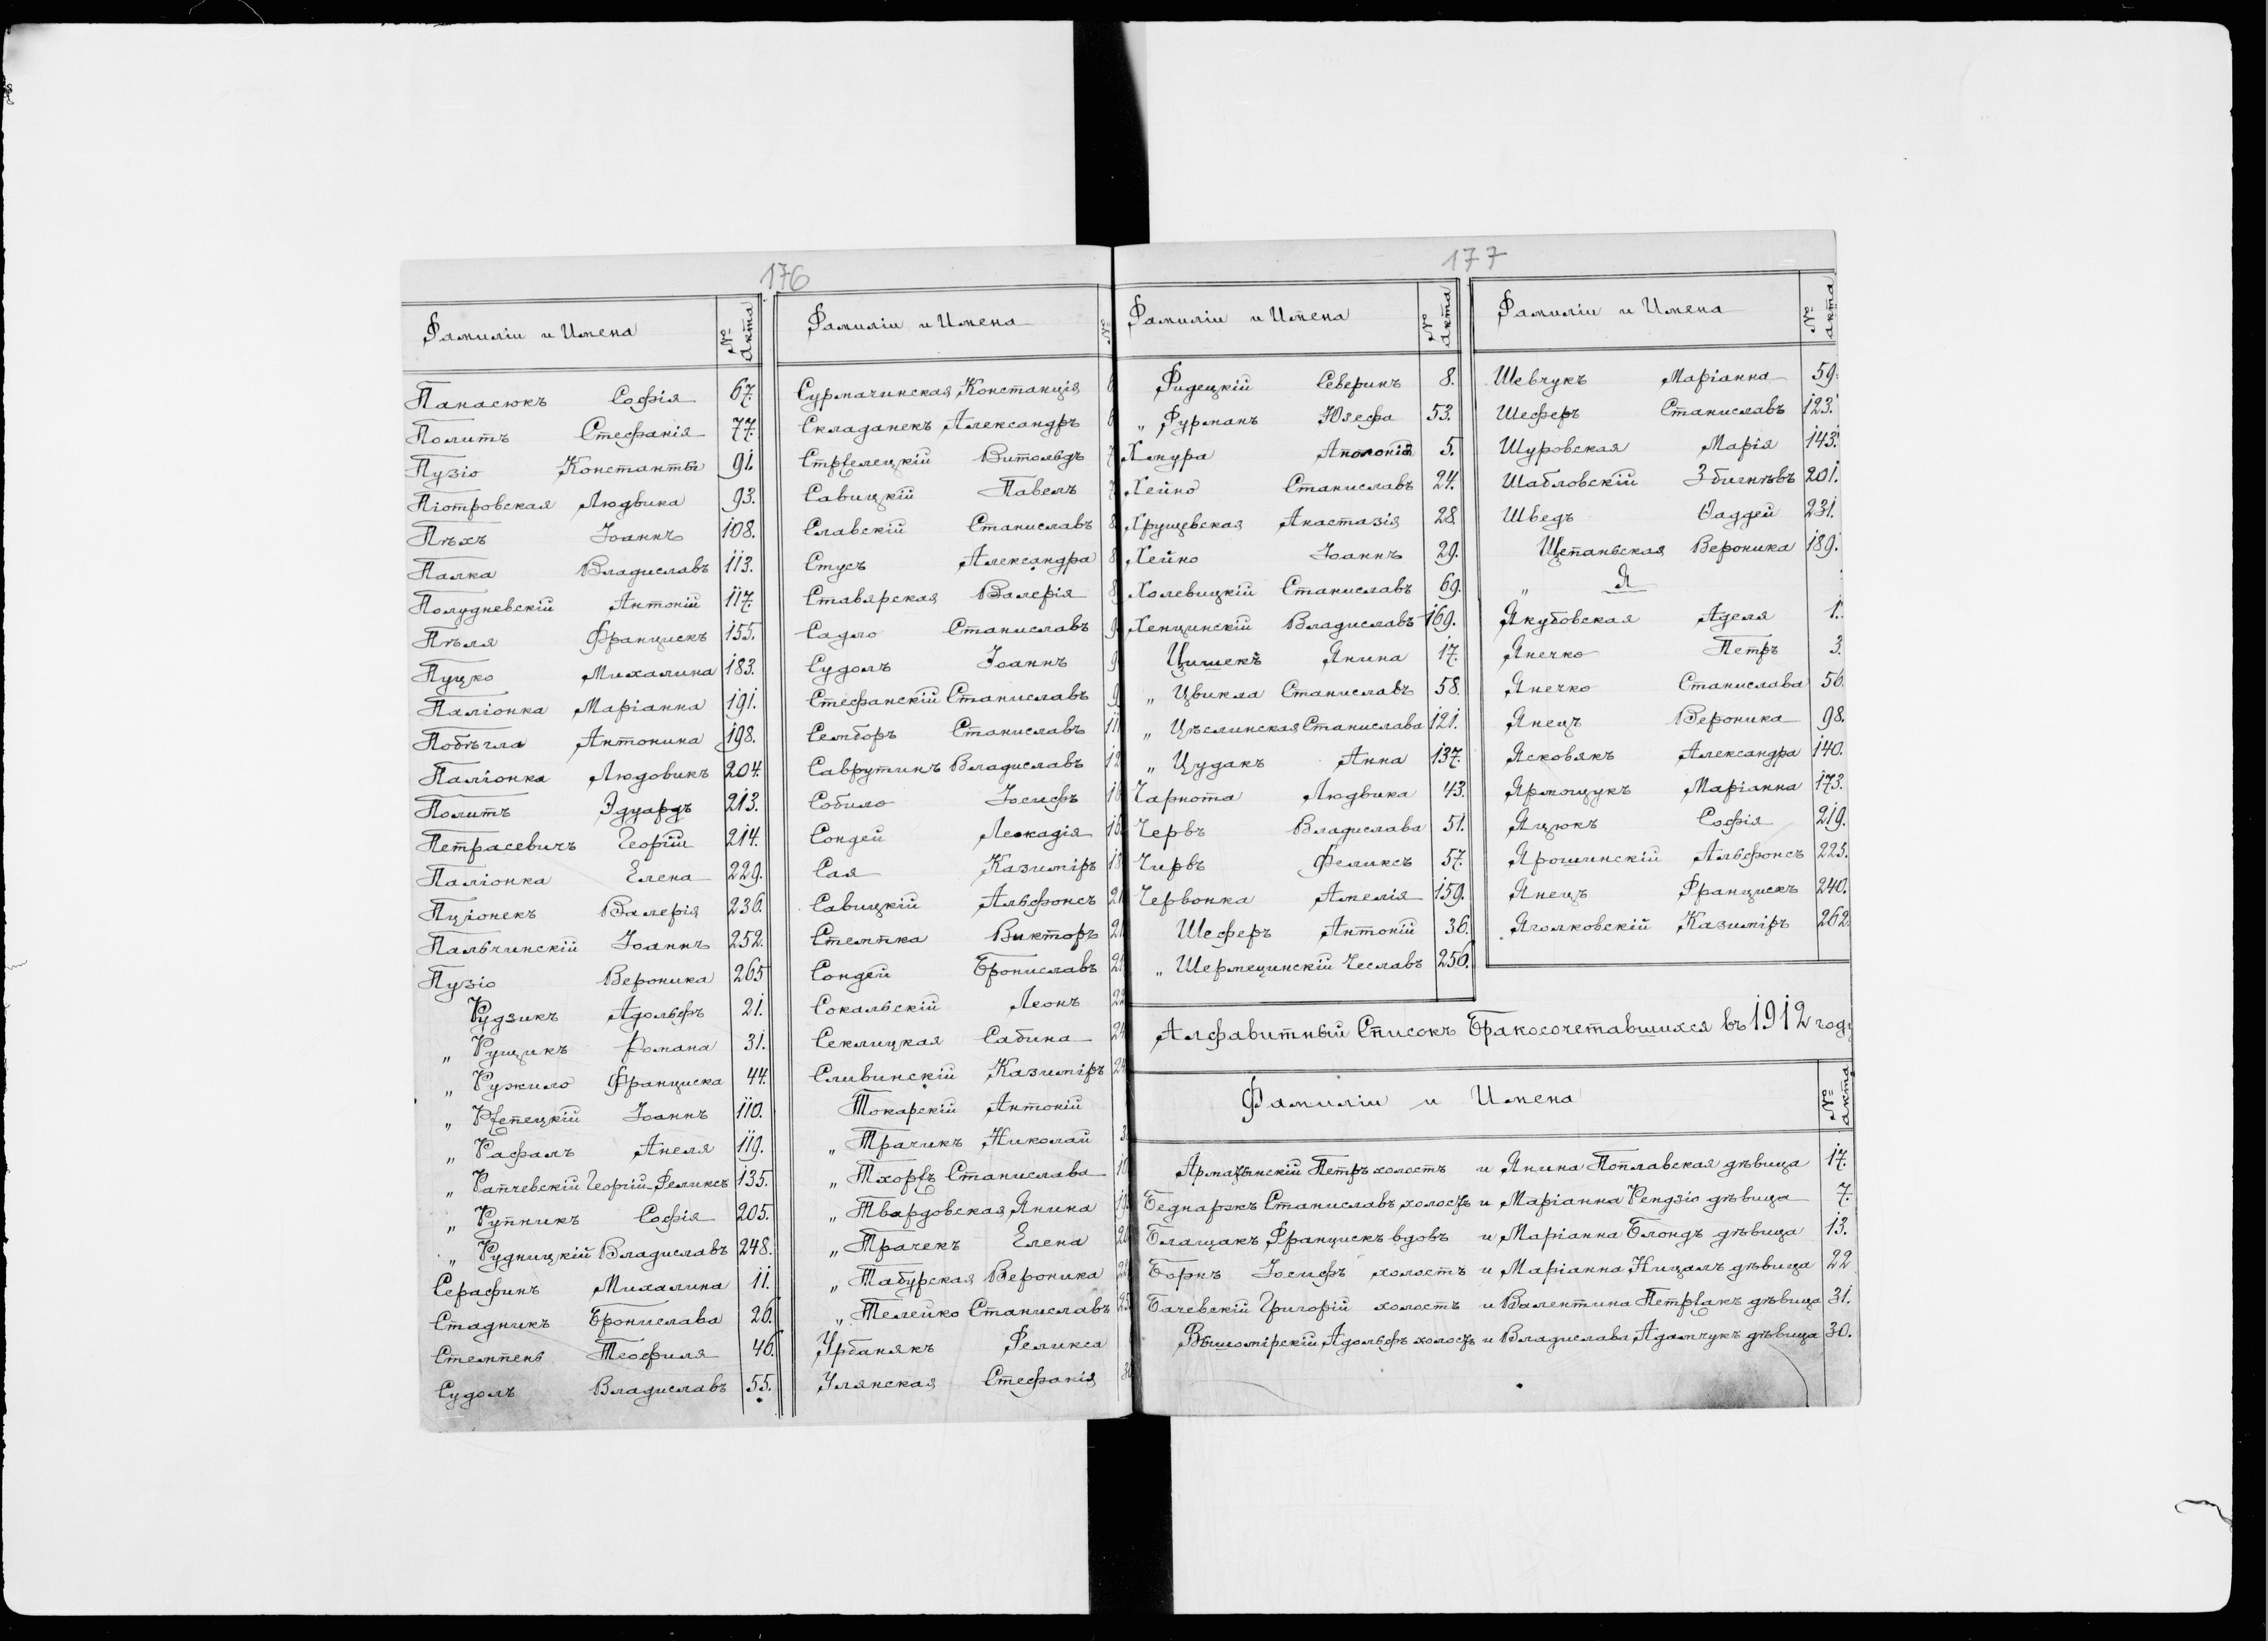 176
Фамиліи и Имена № Акта
Панасюкъ Софія 67.
Политъ Стефанія 77.
Пузіо Константы 91.
Піотровская Людвика 93.
Пѣхъ Іоаннъ 108.
Палка Владиславъ 113.
Полудневскій Антоній 117.
Пѣля Францискъ 155.
Пуцко Михалина 183.
Паліонка Маріанна 191.
Побѣгла Антонина 198.
Паліонка Людовикъ 204.
Политъ Эдуардъ 213.
Петрасевичъ Георгій 214.
Паліонка Елена 229.
Пуціонекъ Валерія 236.
Пальчинскій Іоаннъ 252.
Пузіо Вероника 265
Рудзикъ Адольфъ 21.
„ Рущикъ Романа 31.
„ Ружило Франциска 44.
„ Рfепецкій Іоаннъ 110.
„ Рафалъ Анеля 119.
„ Рапчевскій Георгій-Феликсъ 135.
„ Рупникъ Софія 205.
„ Рудницкій Владиславъ 248.
Серафинъ Михалина 11.
Стадникъ Брониславa 26.
Стемпень Теофиля 46.
Судолъ Владиславъ 55.
Фамиліи и Имена №
Сурмачинская Констанція
Складанекъ Александръ
Стрfелецкій Витольдъ
Савицкій Павелъ
Славскій Станиславъ
Стусъ Александра
Ставярская Валерія
Садло Станиславъ
Судолъ Іоаннъ
Стефанскій Станиславъ
Семборъ Станиславъ
Саврутинъ Владиславъ
Собило Іосифъ
Сондей Леокадія
Сая Казиміръ
Савицкій Альфонсъ
Стемпка Викторъ
Сондей Брониславъ
Сокальскій Леонъ
Секлицкая Сабина
Сливинскій Казиміръ
Токарскій Антоній
„ Трачикъ Николай
„ Тхорfъ Станислава
„ Твардовская Янина
„ Трачекъ Елена
„ Табурская Вероника
„ Телейко Станиславъ
Урбанякъ Феликса
Улянская Стефанія
177
Фамиліи и Имена № Акта
Фидецкій Северинъ 8.
„ Фурманъ Юзефа 53.
Хмура Аполонія 5.
Хейно Станиславъ 24.
Хрущевская Анастазія 28.
Хейно Іоаннъ 29.
Холевицкій Станиславъ 69.
Хенцинскій Владиславъ 169.
Цишекъ Янина 17.
„ Цвикла Станиславъ 58.
„ Цѣслинская Станислава 121.
„ Цудакъ Анна 137.
Чарнота Людвика 43.
Червъ Владислава 51.
Чирвъ Феликсъ 57.
Червонка Амелія 159.
Шеферъ Антоній 36.
„ Шермецинскій Чеславъ 256.
Фамиліи и Имена № акта
Шевчукъ Маріанна 59.
Шеферъ Станиславъ 123.
Шуровская Марія 143.
Шабловскій Збигнѣвъ 201.
Шведъ Ѳаддей 231.
Щепаньская Вероника 189.
„ Я
Якубовская Аделя 1.
Янечко Петръ 3.
Янечко Станислава 56.
Янецъ Вероника 98.
Ясковякъ Александра 140.
Ярмощукъ Маріанна 173.
Яцюкъ Софія 219.
Ярошинскій Альфонсъ 225.
Янецъ Францискъ 240.
Яголковскій Казиміръ 262.
Алфавитный Списокъ Бракосочетавшихся въ 1912 году
Фамиліи и Имена № акта
Армацинскій Петръ холостъ и Янина Поплавская дѣвица 17.
Беднаржъ Станиславъ холостъ и Маріанна Рендзіо дѣвица 7.
Блащакъ Францискъ вдовъ и Маріанна Блондъ дѣвица 13.
Борнъ Іосифъ холостъ и Маріанна Ницалъ дѣвица 22
Бачевскій Григорій холостъ и Валентина Петрfакъ дѣвица 31.
Вышомірскій Адольфъ холостъ и Владислава Адамчукъ дѣвица 30.